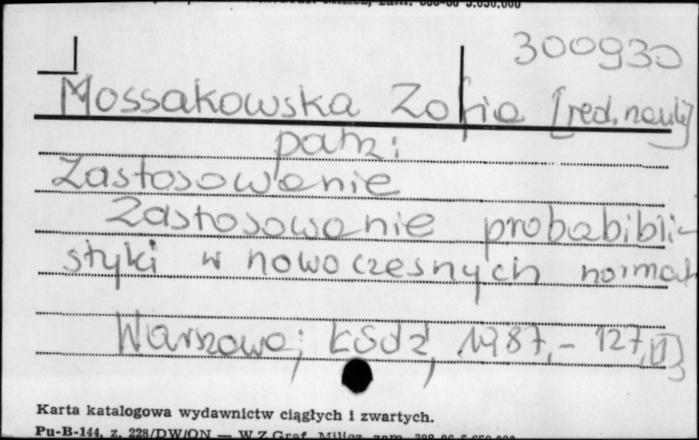 300930
Mossakowska Zofia [red. nauk]
patrz:
Zastosowanie
Zastosowanie probabibli-
styki w nowoczesnych normach
Warszawa; Łódź, 1987,- 127,[1]
Karta katalogowa wydawnictw ciągłych i zwartych.
Pu-B-144, z. 228/DW/ON — W.Z.Graf. Milicz, zam.